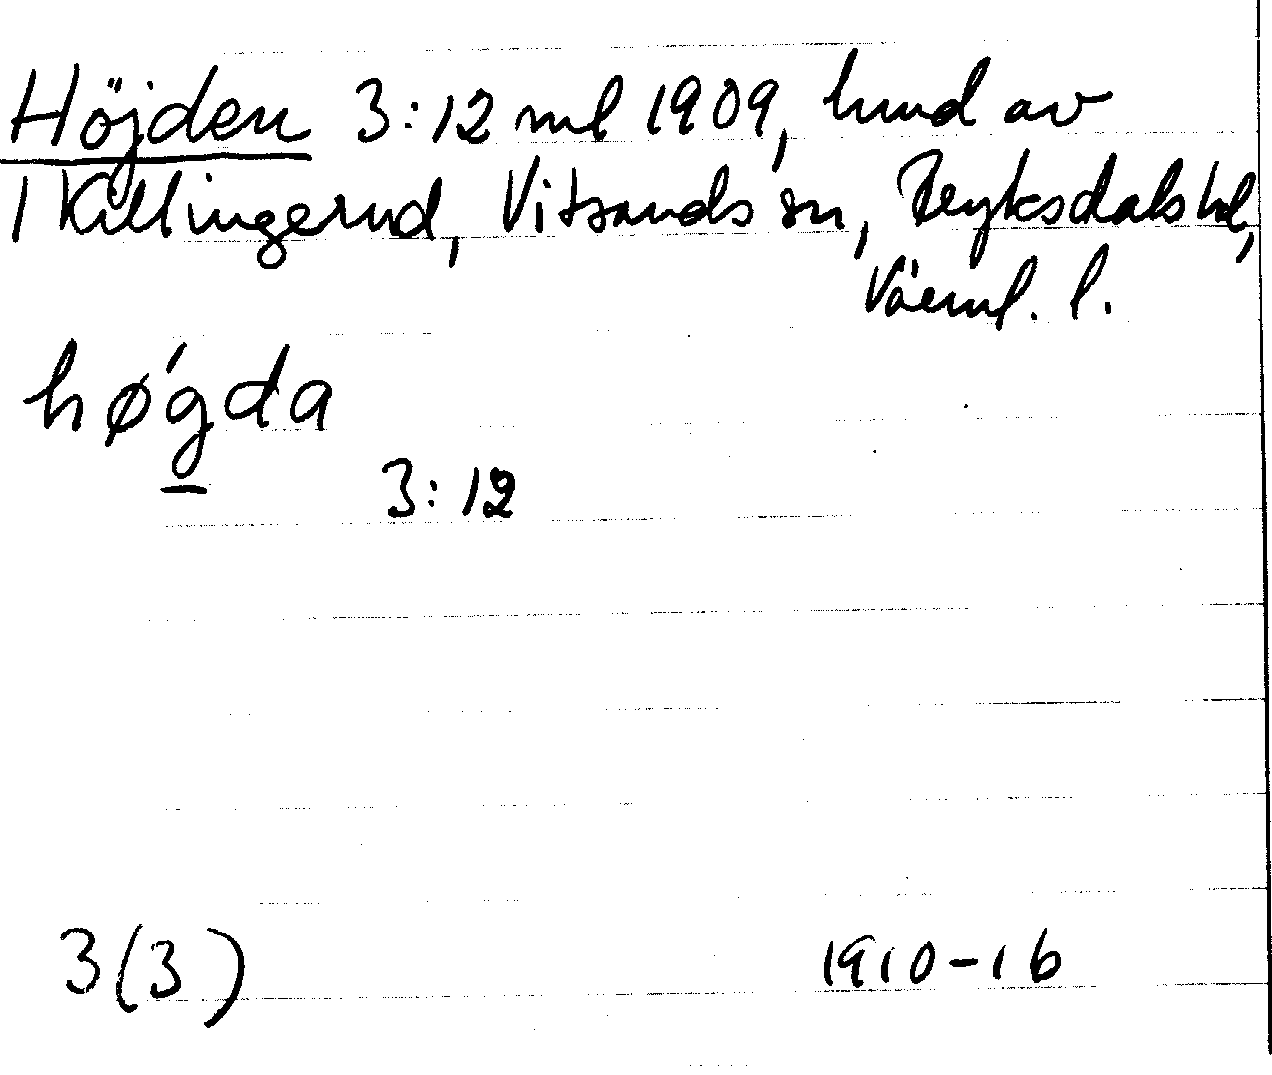 Höjden 3:12 ml 1909, lund av
1 Killingerud, Vitsands sn, Fryksdals hd,
Värml. l.
hǿgda
3:12
3(3) 1910-16